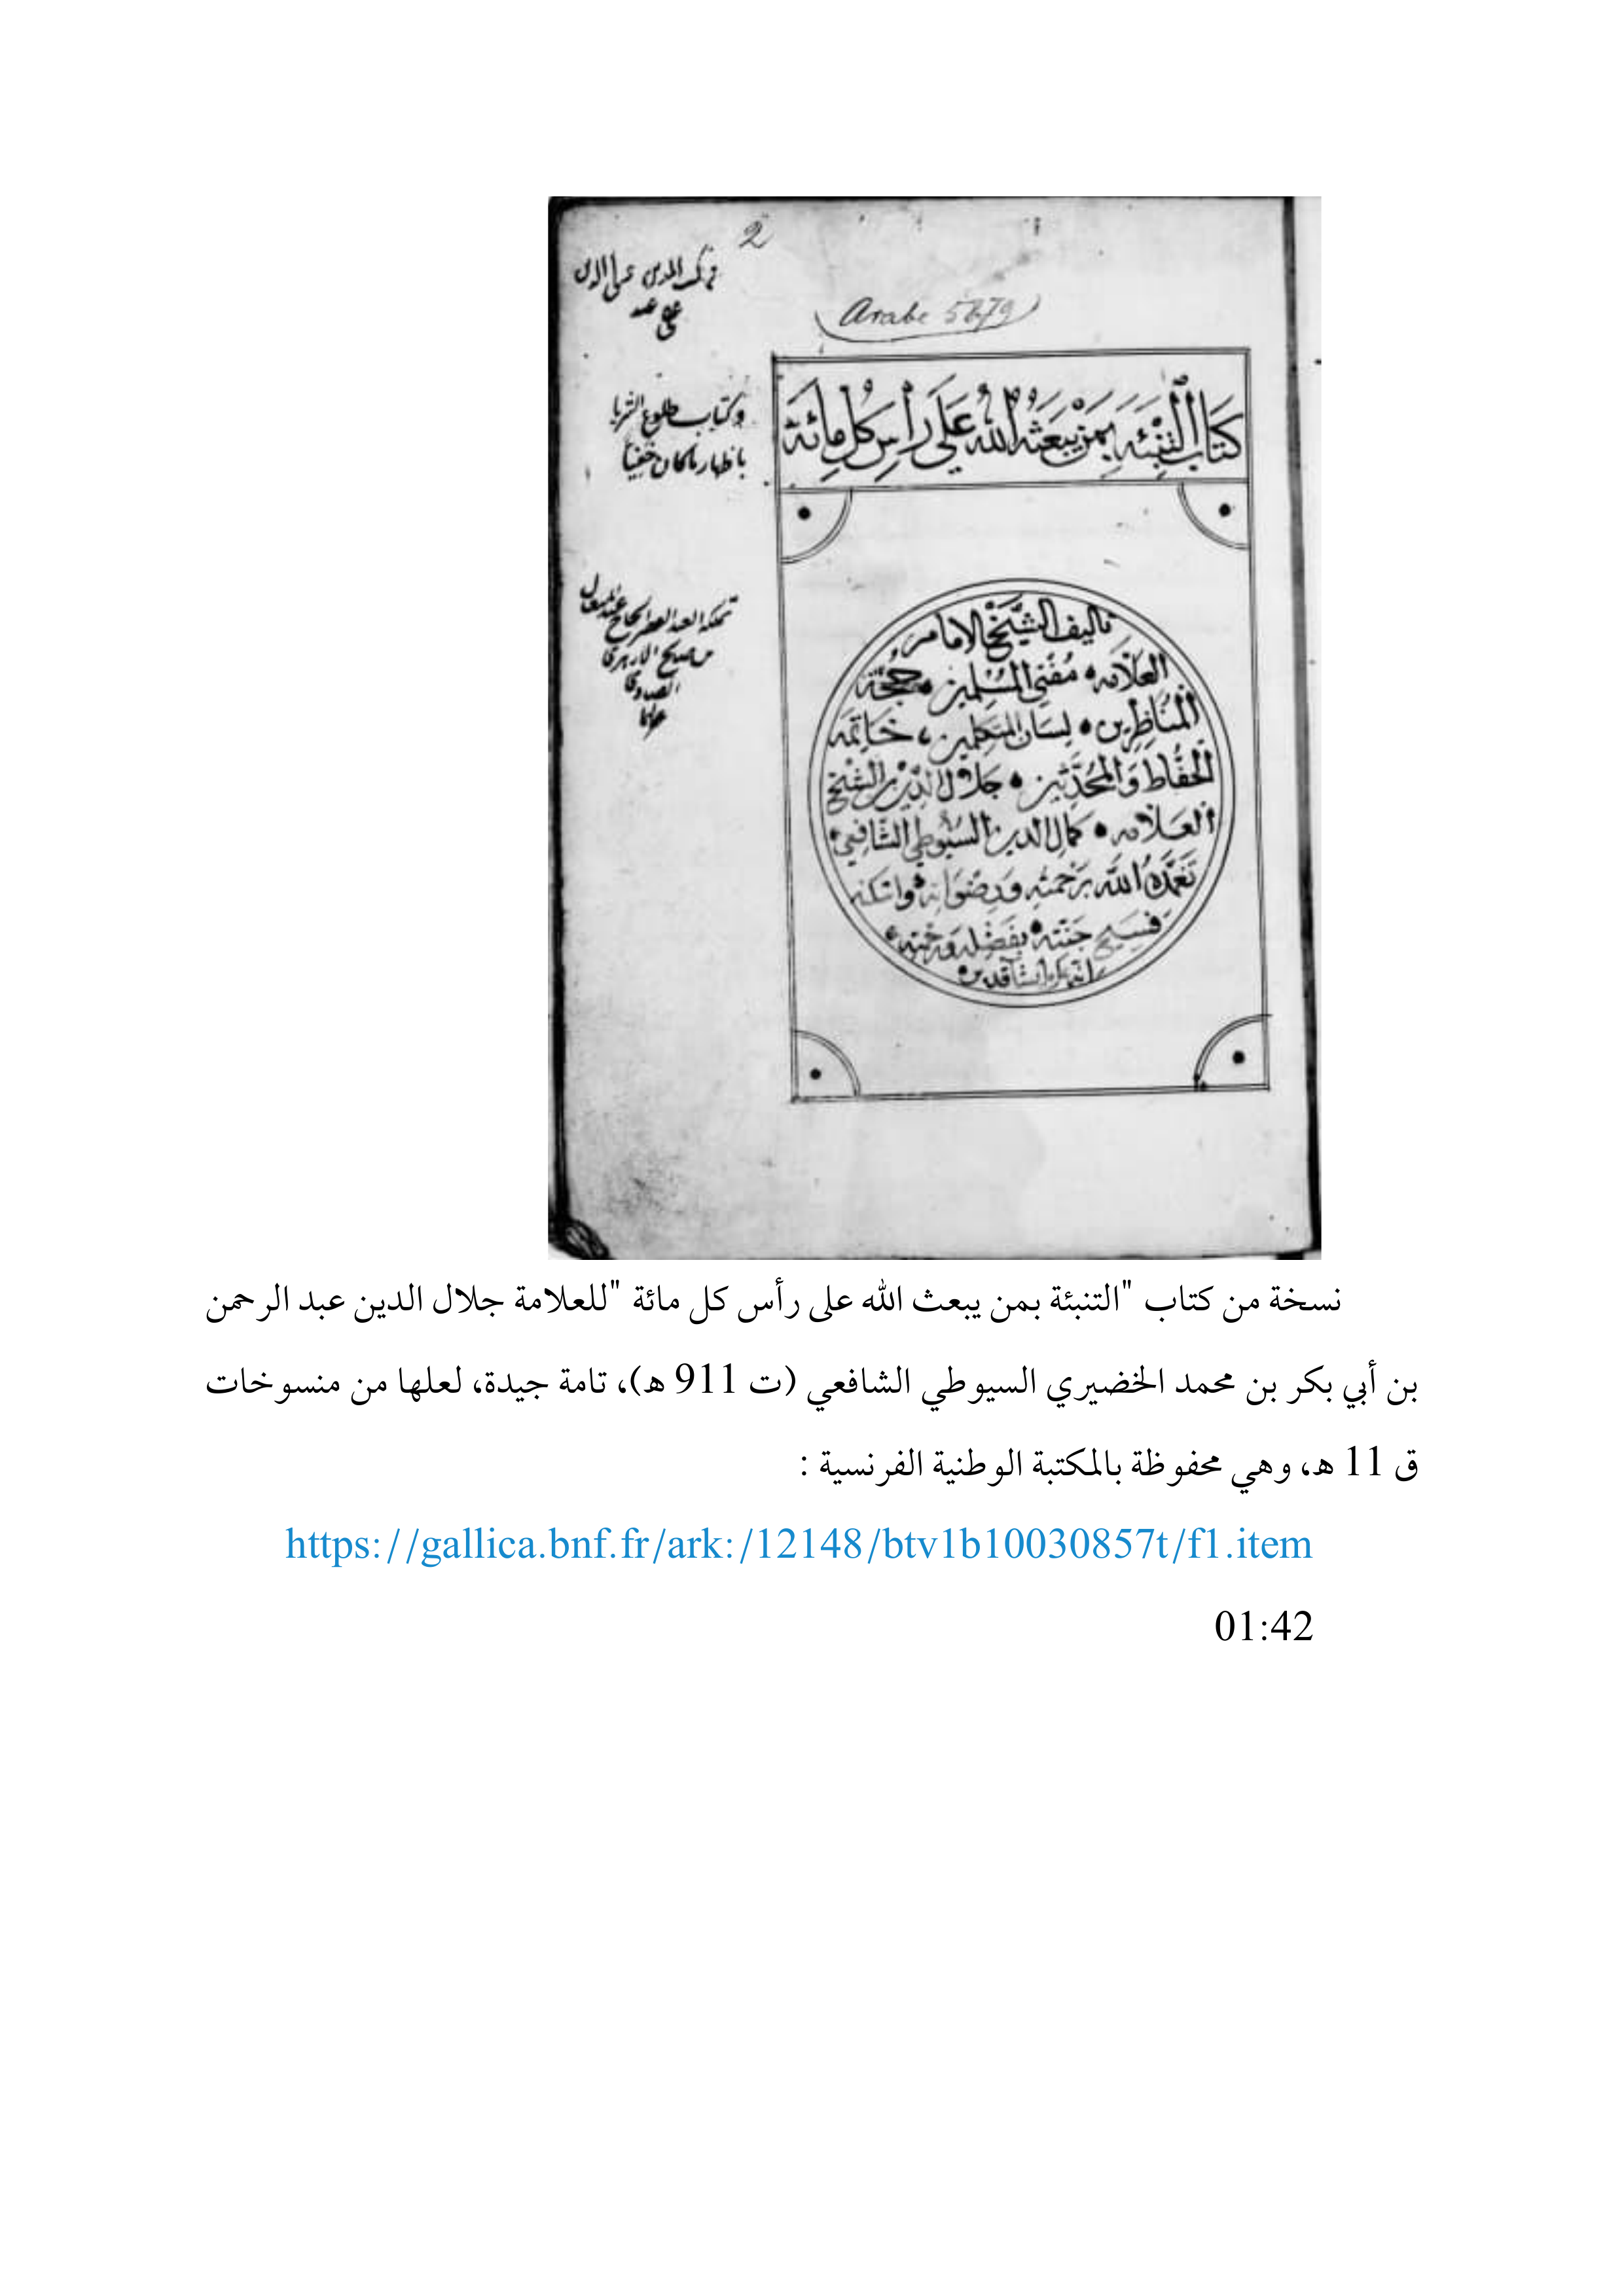 2
Arabe 5679
كِتَابُ التَّنْبِئَةِ بِمَنْ يَبْعَثُهُ اللهُ عَلَى رَأْسِ كُلِّ مِائَةٍ
وكتاب طلوع الثريا
باظهار ماكان خفيا
تأليف الشيخ الامام
العلامه مفتي المسلمين حجة
المناظرين لسان المتكلمين خاتمة
الحفاظ والمحدثين جلال الدين بن الشيخ
العلامه كمال الدين السيوطي الشافعي
تغمده الله برحمته ورضوانه واسكنه
فسيح جنته بفضله ورحمته
نسخة من كتاب "التنبئة بمن يبعث الله على رأس كل مائة "للعلامة جلال الدين عبد الرحمن
بن أبي بكر بن محمد الخضيري السيوطي الشافعي (ت 911 هـ)، تامة جيدة، لعلها من منسوخات
ق 11 هـ، وهي محفوظة بالمكتبة الوطنية الفرنسية :
https://gallica.bnf.fr/ark:/12148/btv1b10030857t/f1.item
01:42